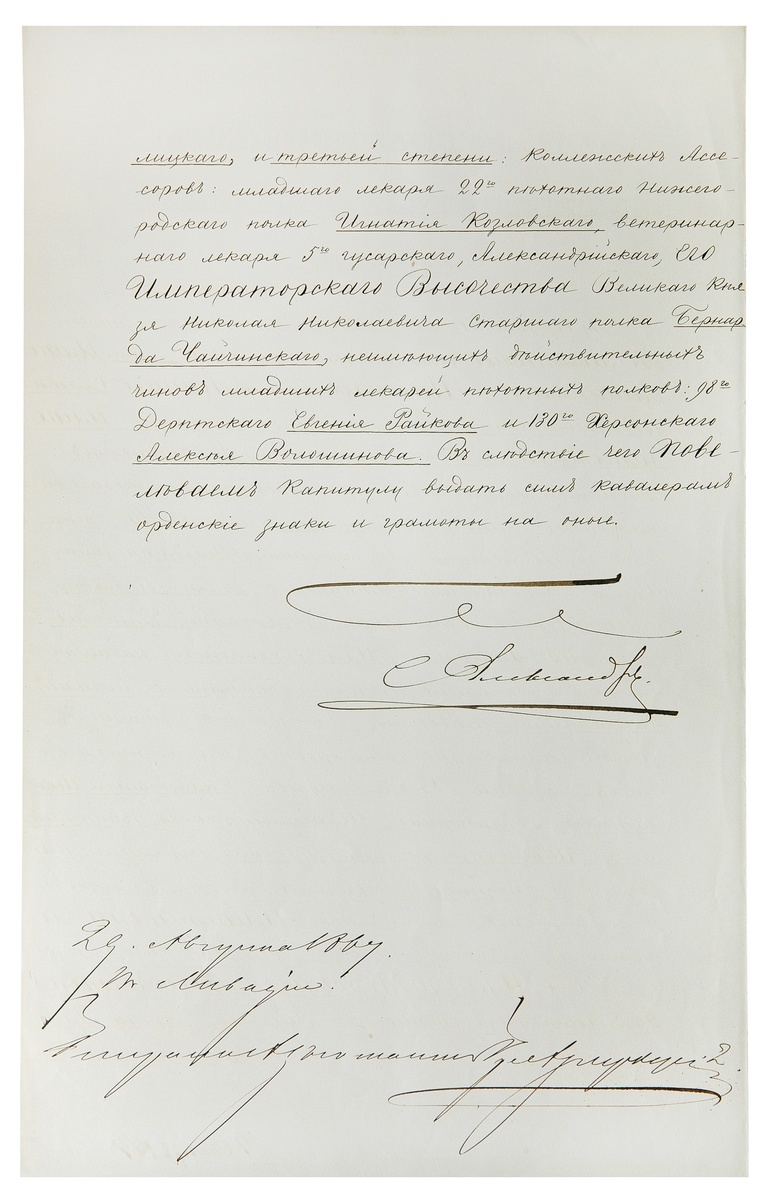 лицкаго, и третьей степени: Коллежскихъ Ассе-
соровъ: младшаго лекаря 22го пѣхотнаго Нижего-
родскаго полка Игнатія Козловскаго, ветеринар-
наго лекаря 5го гусарскаго, Александрійскаго, Его
Императорскаго Высочества Великаго Кня
зя Николая Николаевича старшаго полка Бернар-
да Чайчинскаго, неимѣющихъ дѣйствительныхъ
чиновъ младшихъ лекарей пѣхотныхъ полковъ: 98го
Дерптскаго Евгенія Райкова и 130го Херсонскаго
Алексѣя Волошинова. Въ слѣдствіе чего Пове-
лѣваемъ Капитулу выдать симъ кавалерамъ
орденскіе знаки и грамоты на оные.
Александръ.
29. Августа 1867.
въ Ливадіи.